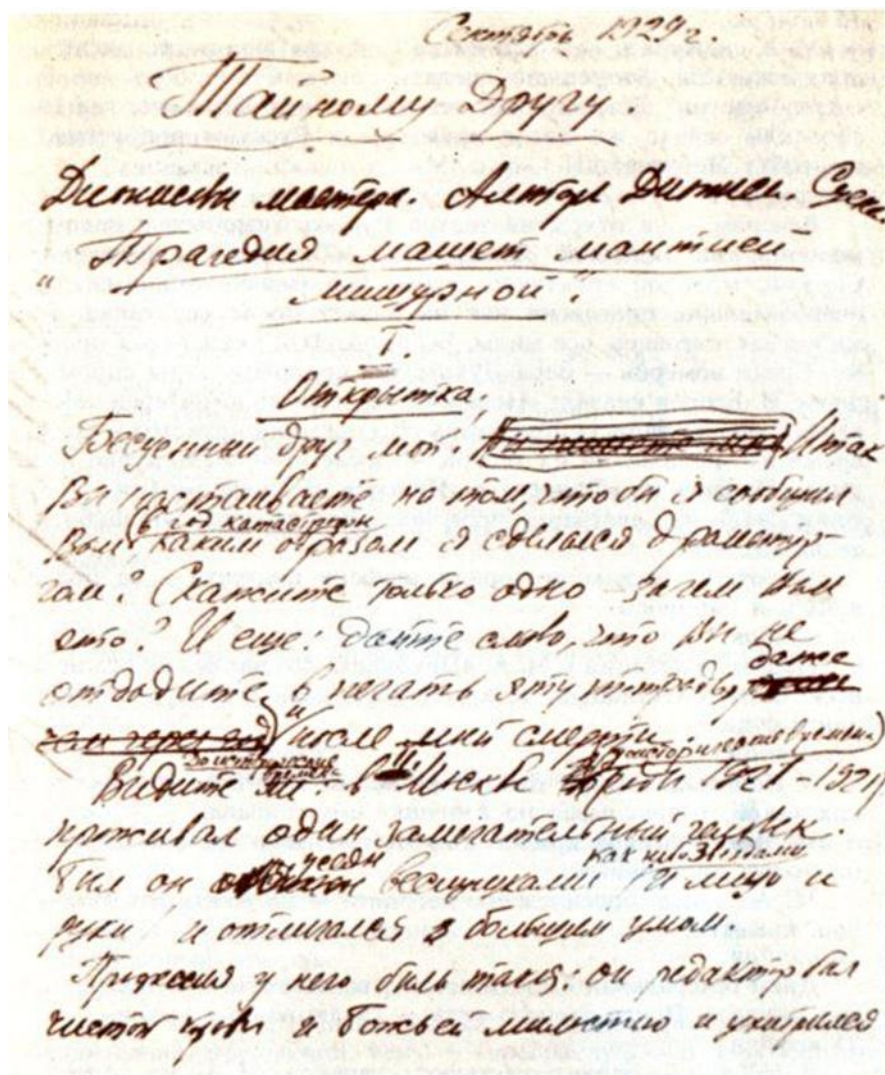 Сентябрь 1929 г.
Тайному Другу
Дионисовы мастера. Алтарь Диониса. Сцены.
"Трагедия машет мантией
мишурной".
I.
Открытка.
Бесценный друг мой! Итак
Вы настаиваете на том, чтобы я сообщил
в год катастрофы
Вам каким образом я сделался драматур-
гом? Скажите только одно — зачем Вам
это? И еще: дайте слово, что Вы не
даже
отдадите в печать эту тетрадь
и после моей смерти.
доисторические времена
Видите ли: в Москве 1921-1925
проживал один замечательный человек.
усеян как небо звездами
Был он веснушками и лицо и
руки и отличался большим умом.
Профессия у него была такая: он редактировал
чистой крови и божьей милостию и ухитрился